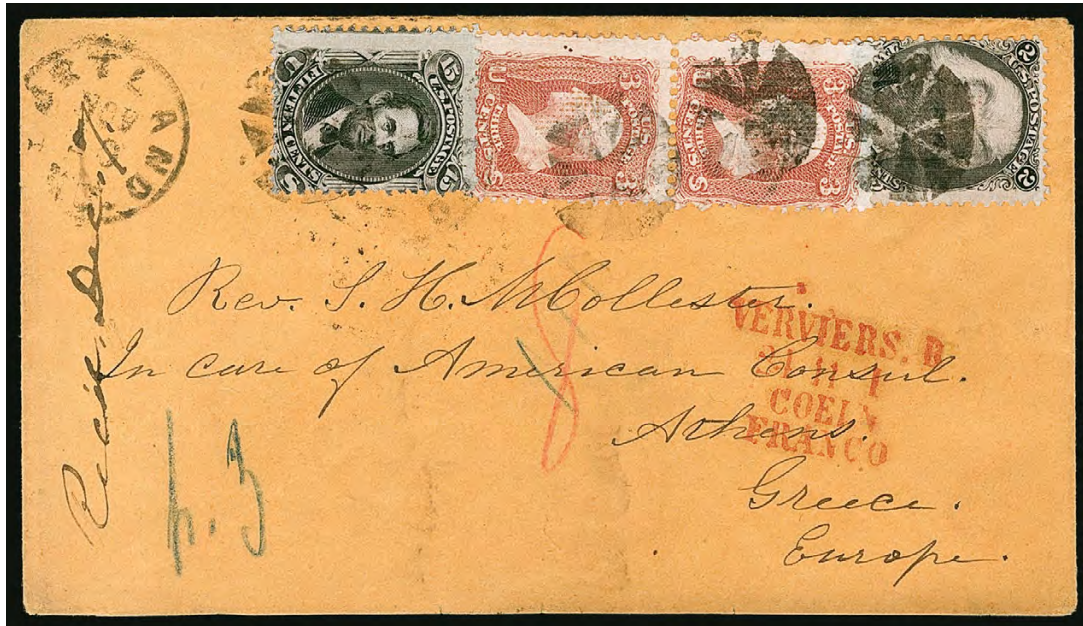 U 15 U.S. POSTAGE 15 FIFTEEN CENTS
U 3 U.S. POSTAGE 3 THREE CENTS S
U 3 U.S. POSTAGE 3 THREE CENTS S
2 U.S. POSTAGE 2
Rev. S. H. McCollester.
In care of American Consul.
Athens.
Greece.
Europe.
8
VERVIERS.
COELN
FRANCO